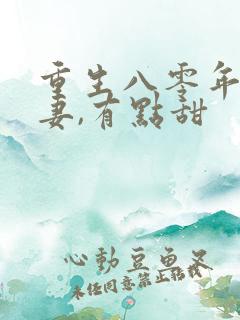 重生八零年
妻,有點甜
心動豆魚叉
未经同意禁止搭載